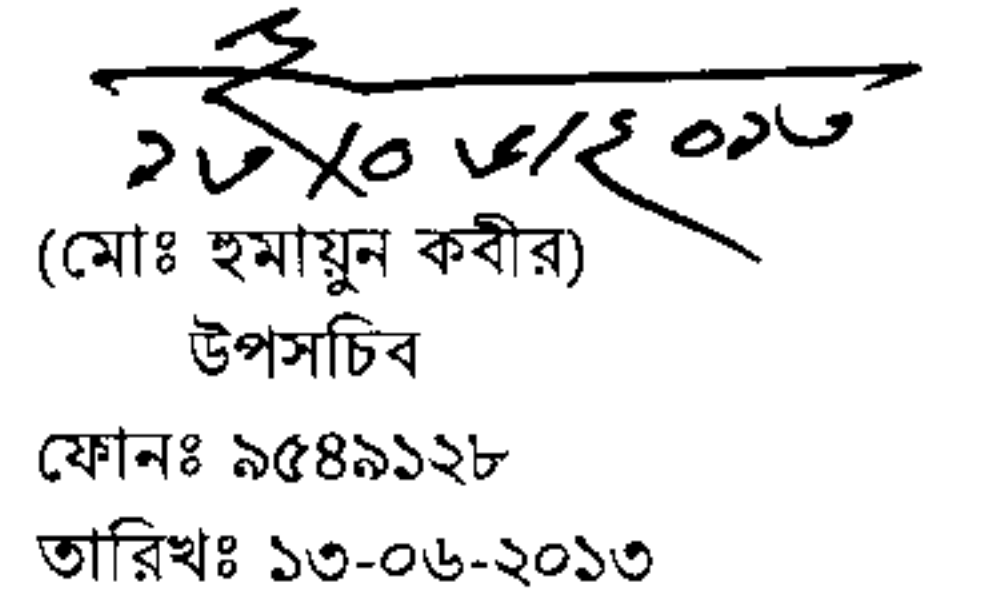 ১৩/০৬/২০১৩
(মোঃ হুমায়ুন কবীর)
উপসচিব
ফোনঃ ৯৫৪৯১২৮
তারিখঃ ১৩-০৬-২০১৩